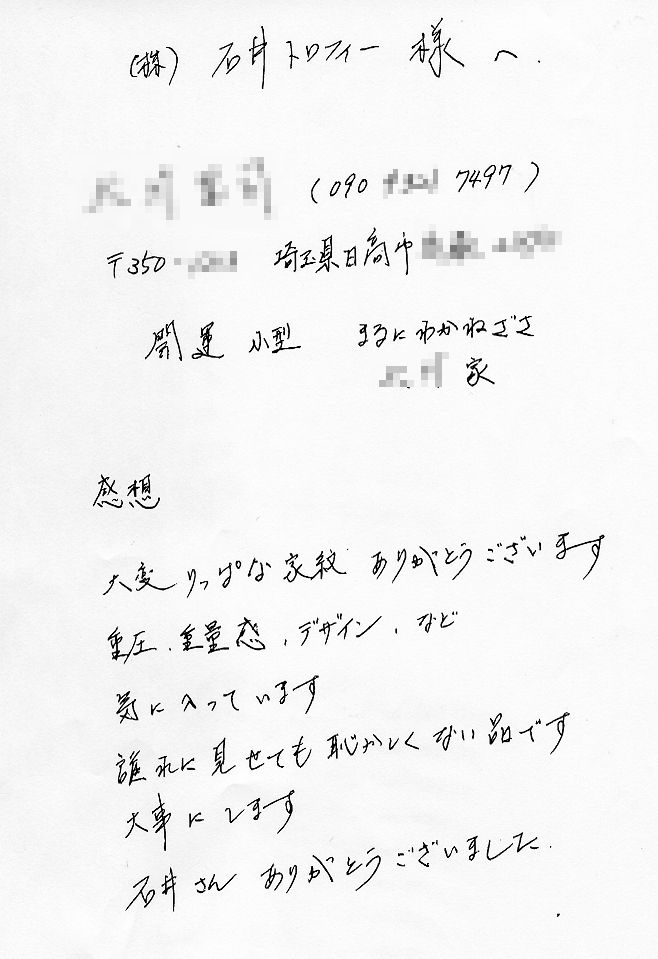 (株) 石井トロフィー 様 へ.
(090 7497)
〒350- 埼玉県日高市
開運 小型 まるにわかねざさ
家
感想
大変りっぱな家紋 ありがとうございます
重圧、重量感、デザイン、など
気に入っています
誰れに見せても恥かしくない品です
大事にします
石井さん ありがとうございました.